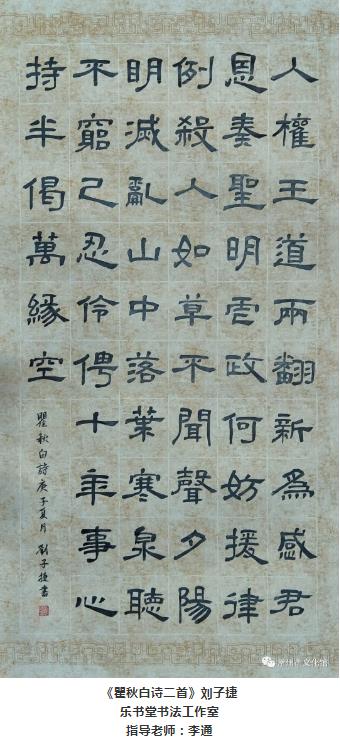 人權王道兩翻新為感君
恩奏聖明虐政何妨援律
例殺人如草不聞聲夕陽
明滅亂山中落葉寒泉聽
不窮已忍伶俜十年事心
持半偈萬緣空
瞿秋白詩庚子夏月劉子捷書
《瞿秋白诗二首》刘子捷
乐书堂书法工作室
指导老师：李通